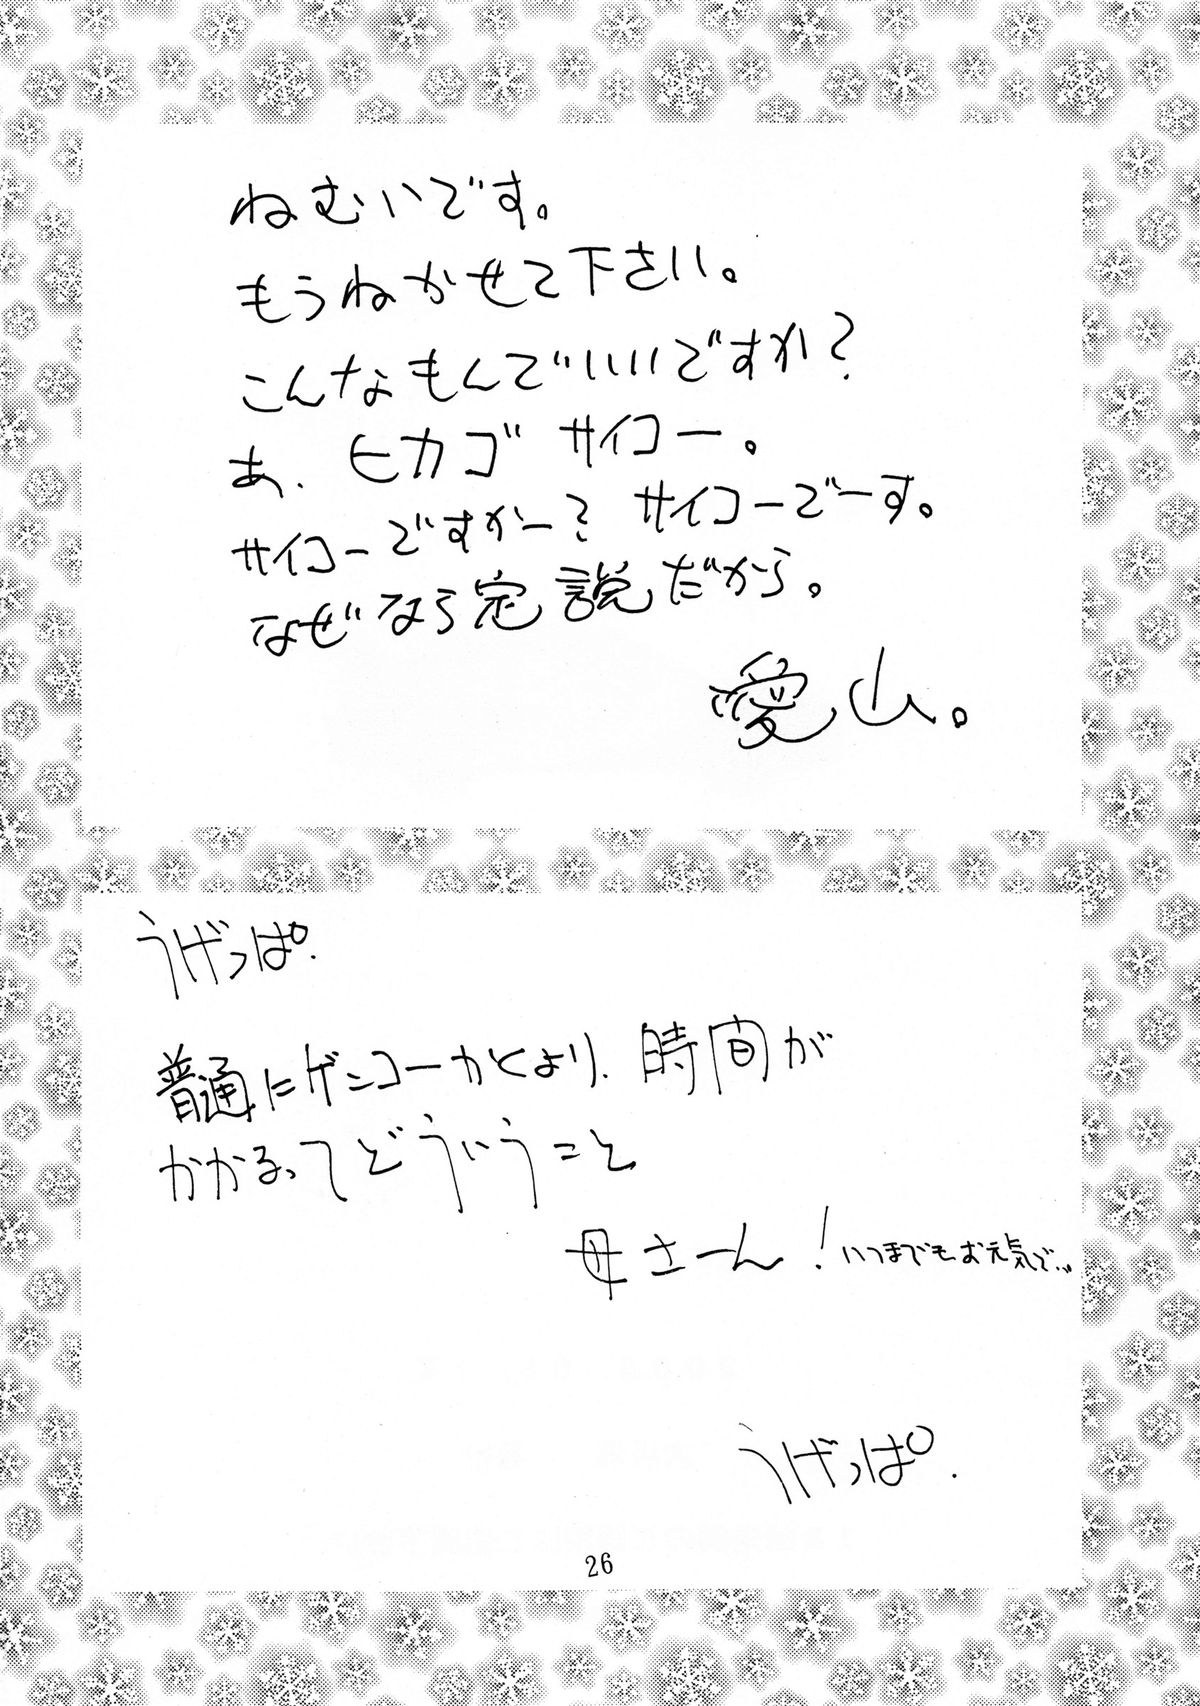 ねむいです。
もうねかせて下さい。
こんなもんでいいですか?
あ、ヒカゴ サイコー。
サイコーですかー? サイコーでーす。
なぜなら定説だから。
愛山。
うげっぱ.
普通にゲンコーかくより、時間が
かかるってどういうこと
母さーん! いつまでもお元気で…
うげっぱ.
26